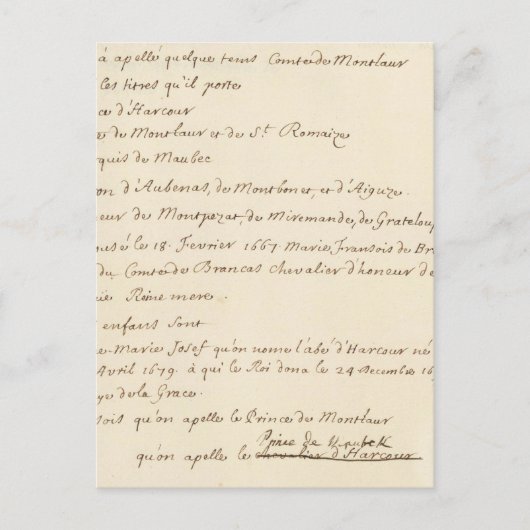 á apellé quelque tems Comte de Montlaur
les titres qu'il porte
ce d'Harcour
te de Montlaur et de St. Romaize
quis de Maubec
on d'Aubenas, de Montbonet, et d'Aiguze.
eur de Montpezat, de Miremande, de Grateloup
ousé le 18. Fevrier 1667. Marie Fransois de Br
du Comte de Brancas chevalier d'honeur de
Reine mere.
enfans sont
e-Marie Josef qu'on nome l'abé d'Harcour né
Avril 1679. à qui le Roi dona le 24 Decembre 16
ye de la Grace.
sois qu'on apelle le Prince de Montlaur
Prince de Maubek
qu'on apelle le chevalier d'Harcour.